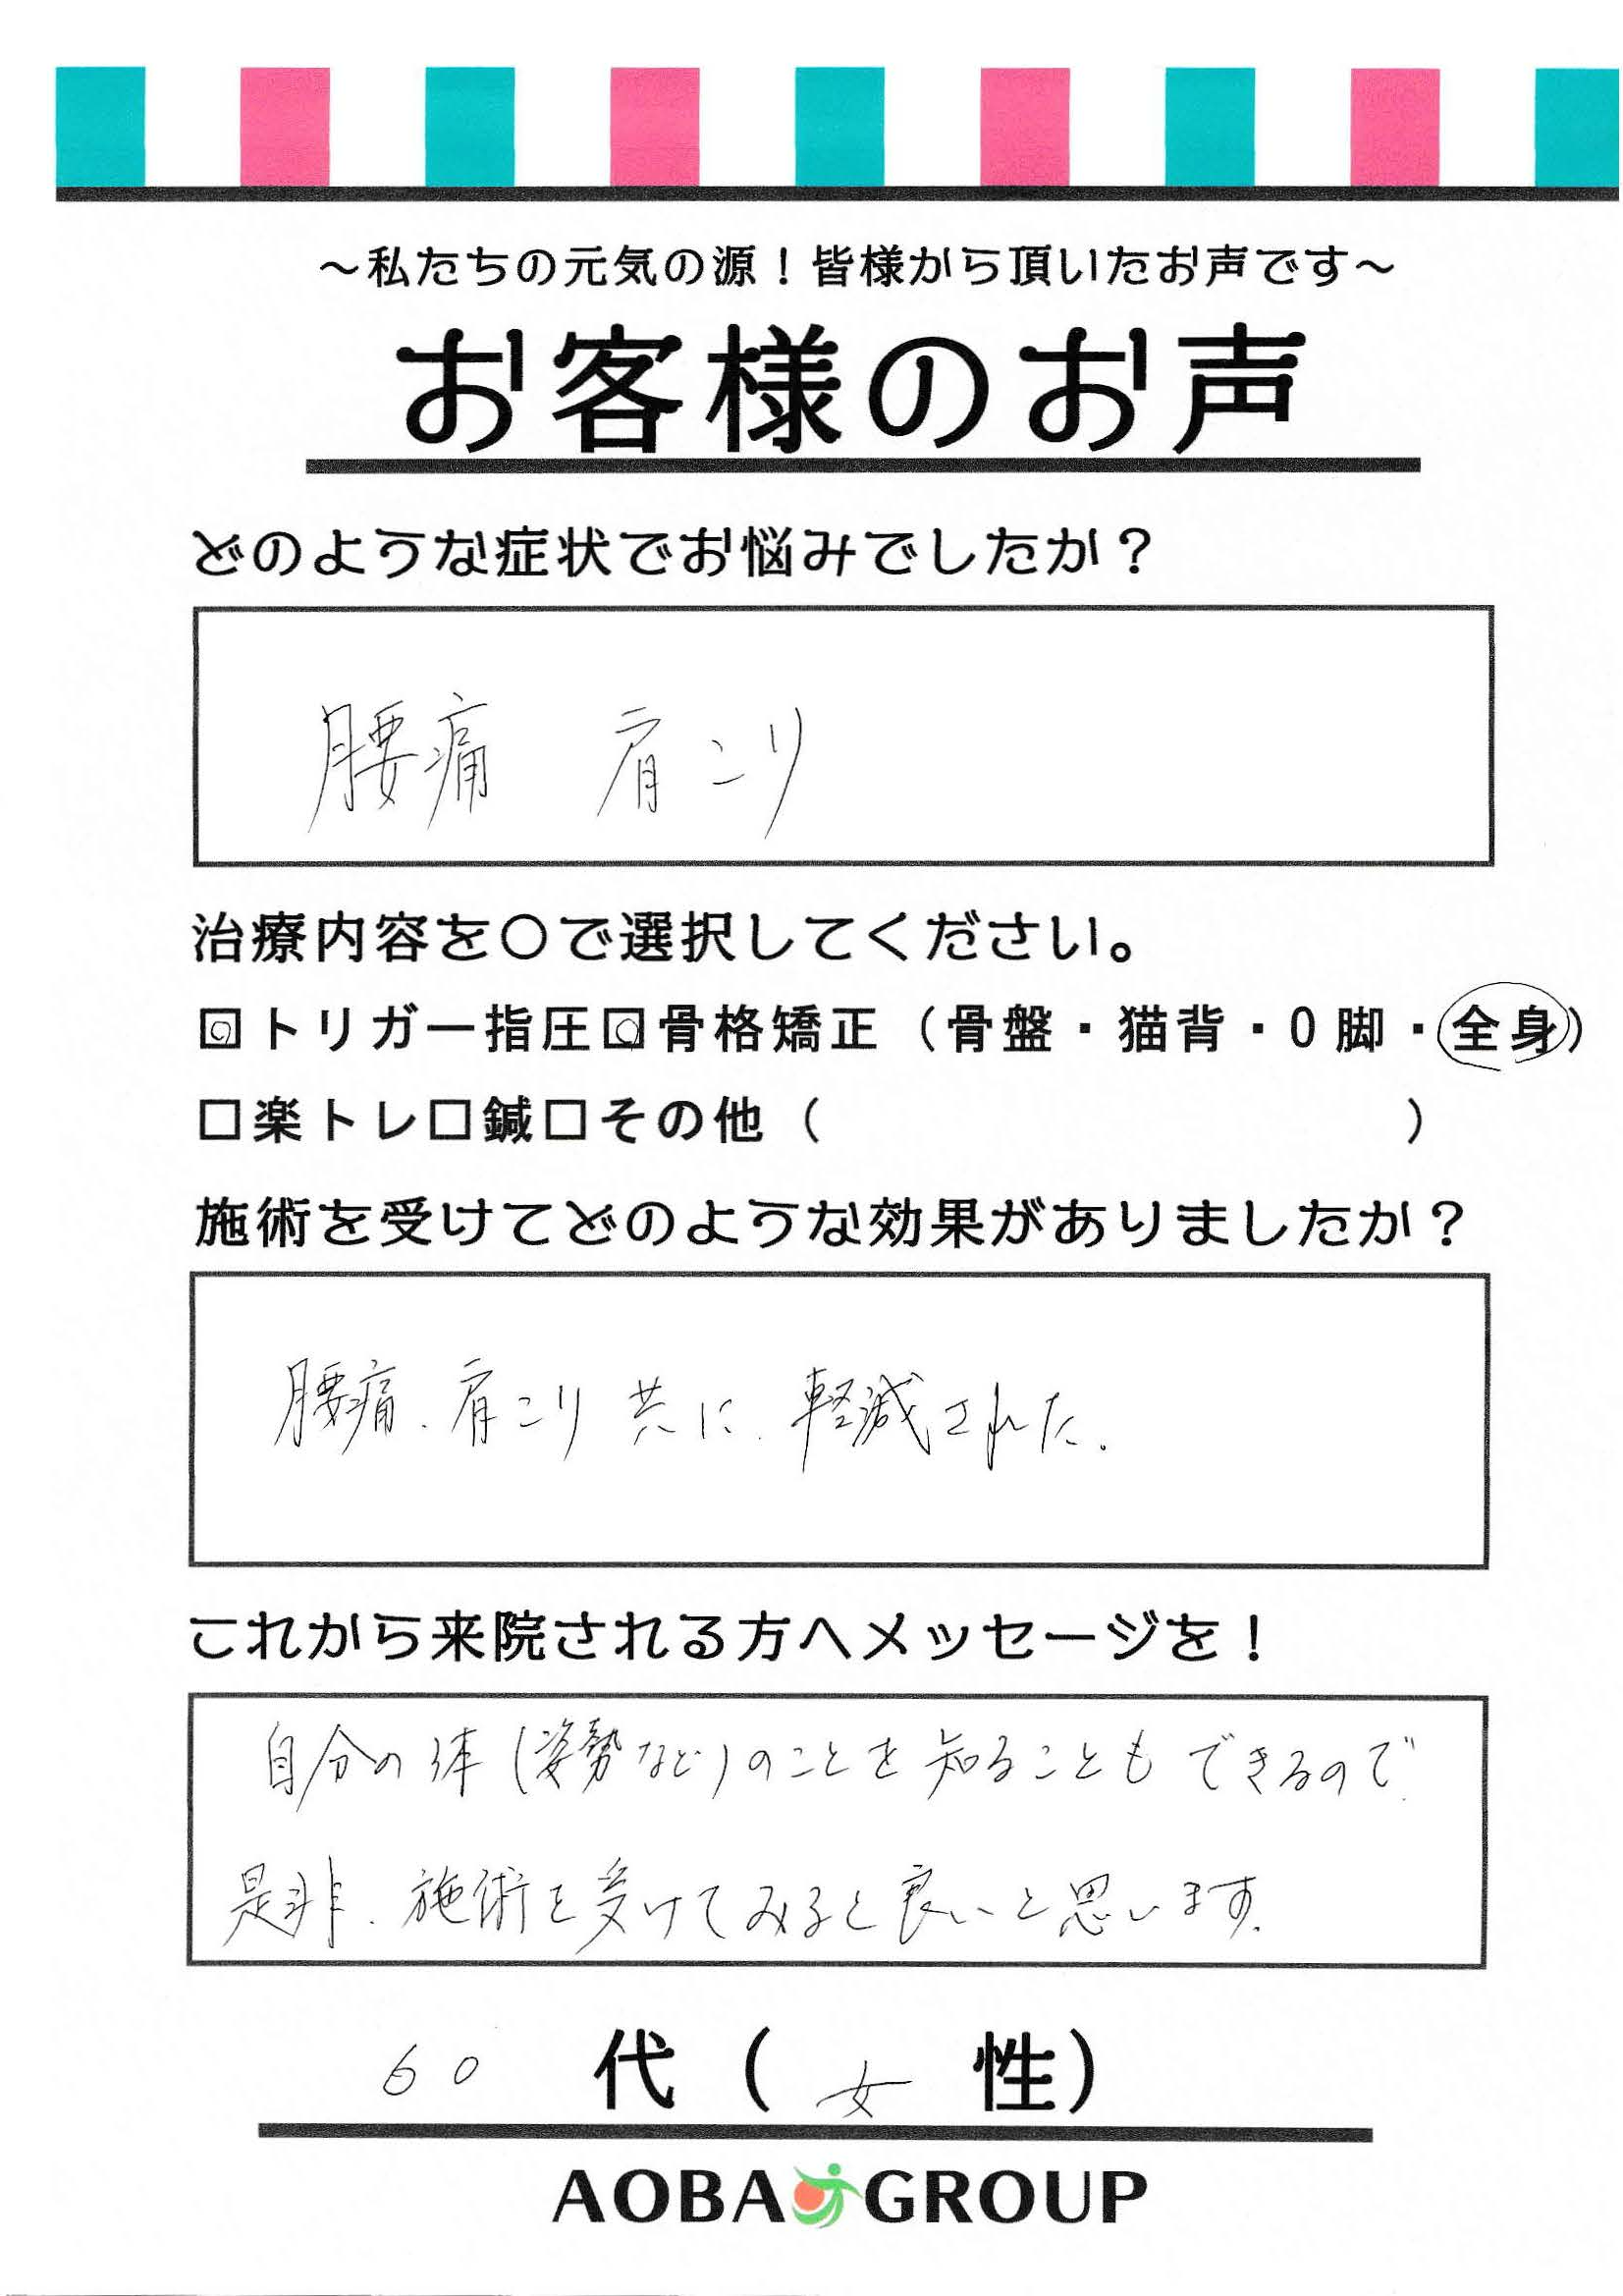 ～私たちの元気の源！皆様から頂いたお声です～
お客様のお声
どのような症状でお悩みでしたか？
腰痛　肩こり
治療内容を〇で選択してください。
□トリガー指圧□骨格矯正（骨盤・猫背・O脚・全身）
□楽トレ□鍼□その他（　　　　　　　　　　）
施術を受けてどのような効果がありましたか？
腰痛、肩こり共に、軽減された。
これから来院される方へメッセージを！
自分の体（姿勢など）のことを知ることもできるので、
是非、施術を受けてみると良いと思います。
60代（女性）
AOBA GROUP